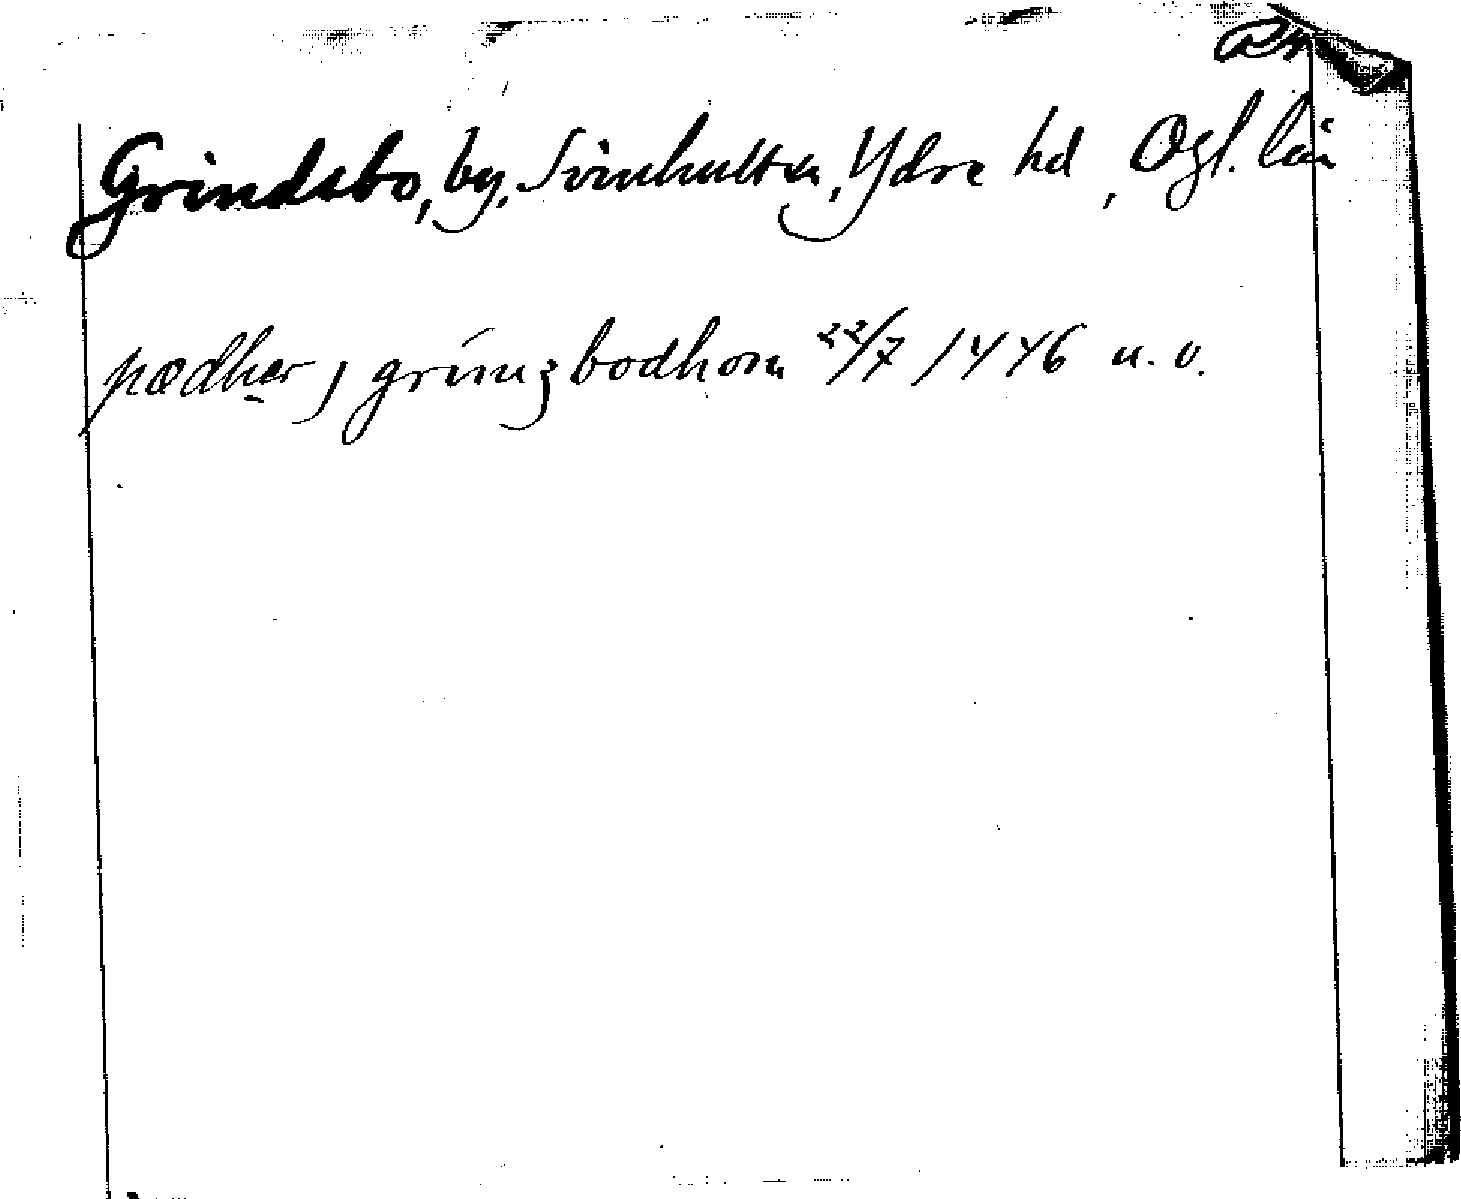 Grindsbo, by, Svinhults sn, Ydre hd, Ögl. län
pædher j grínzbodhom 22/7 1446 u. o.